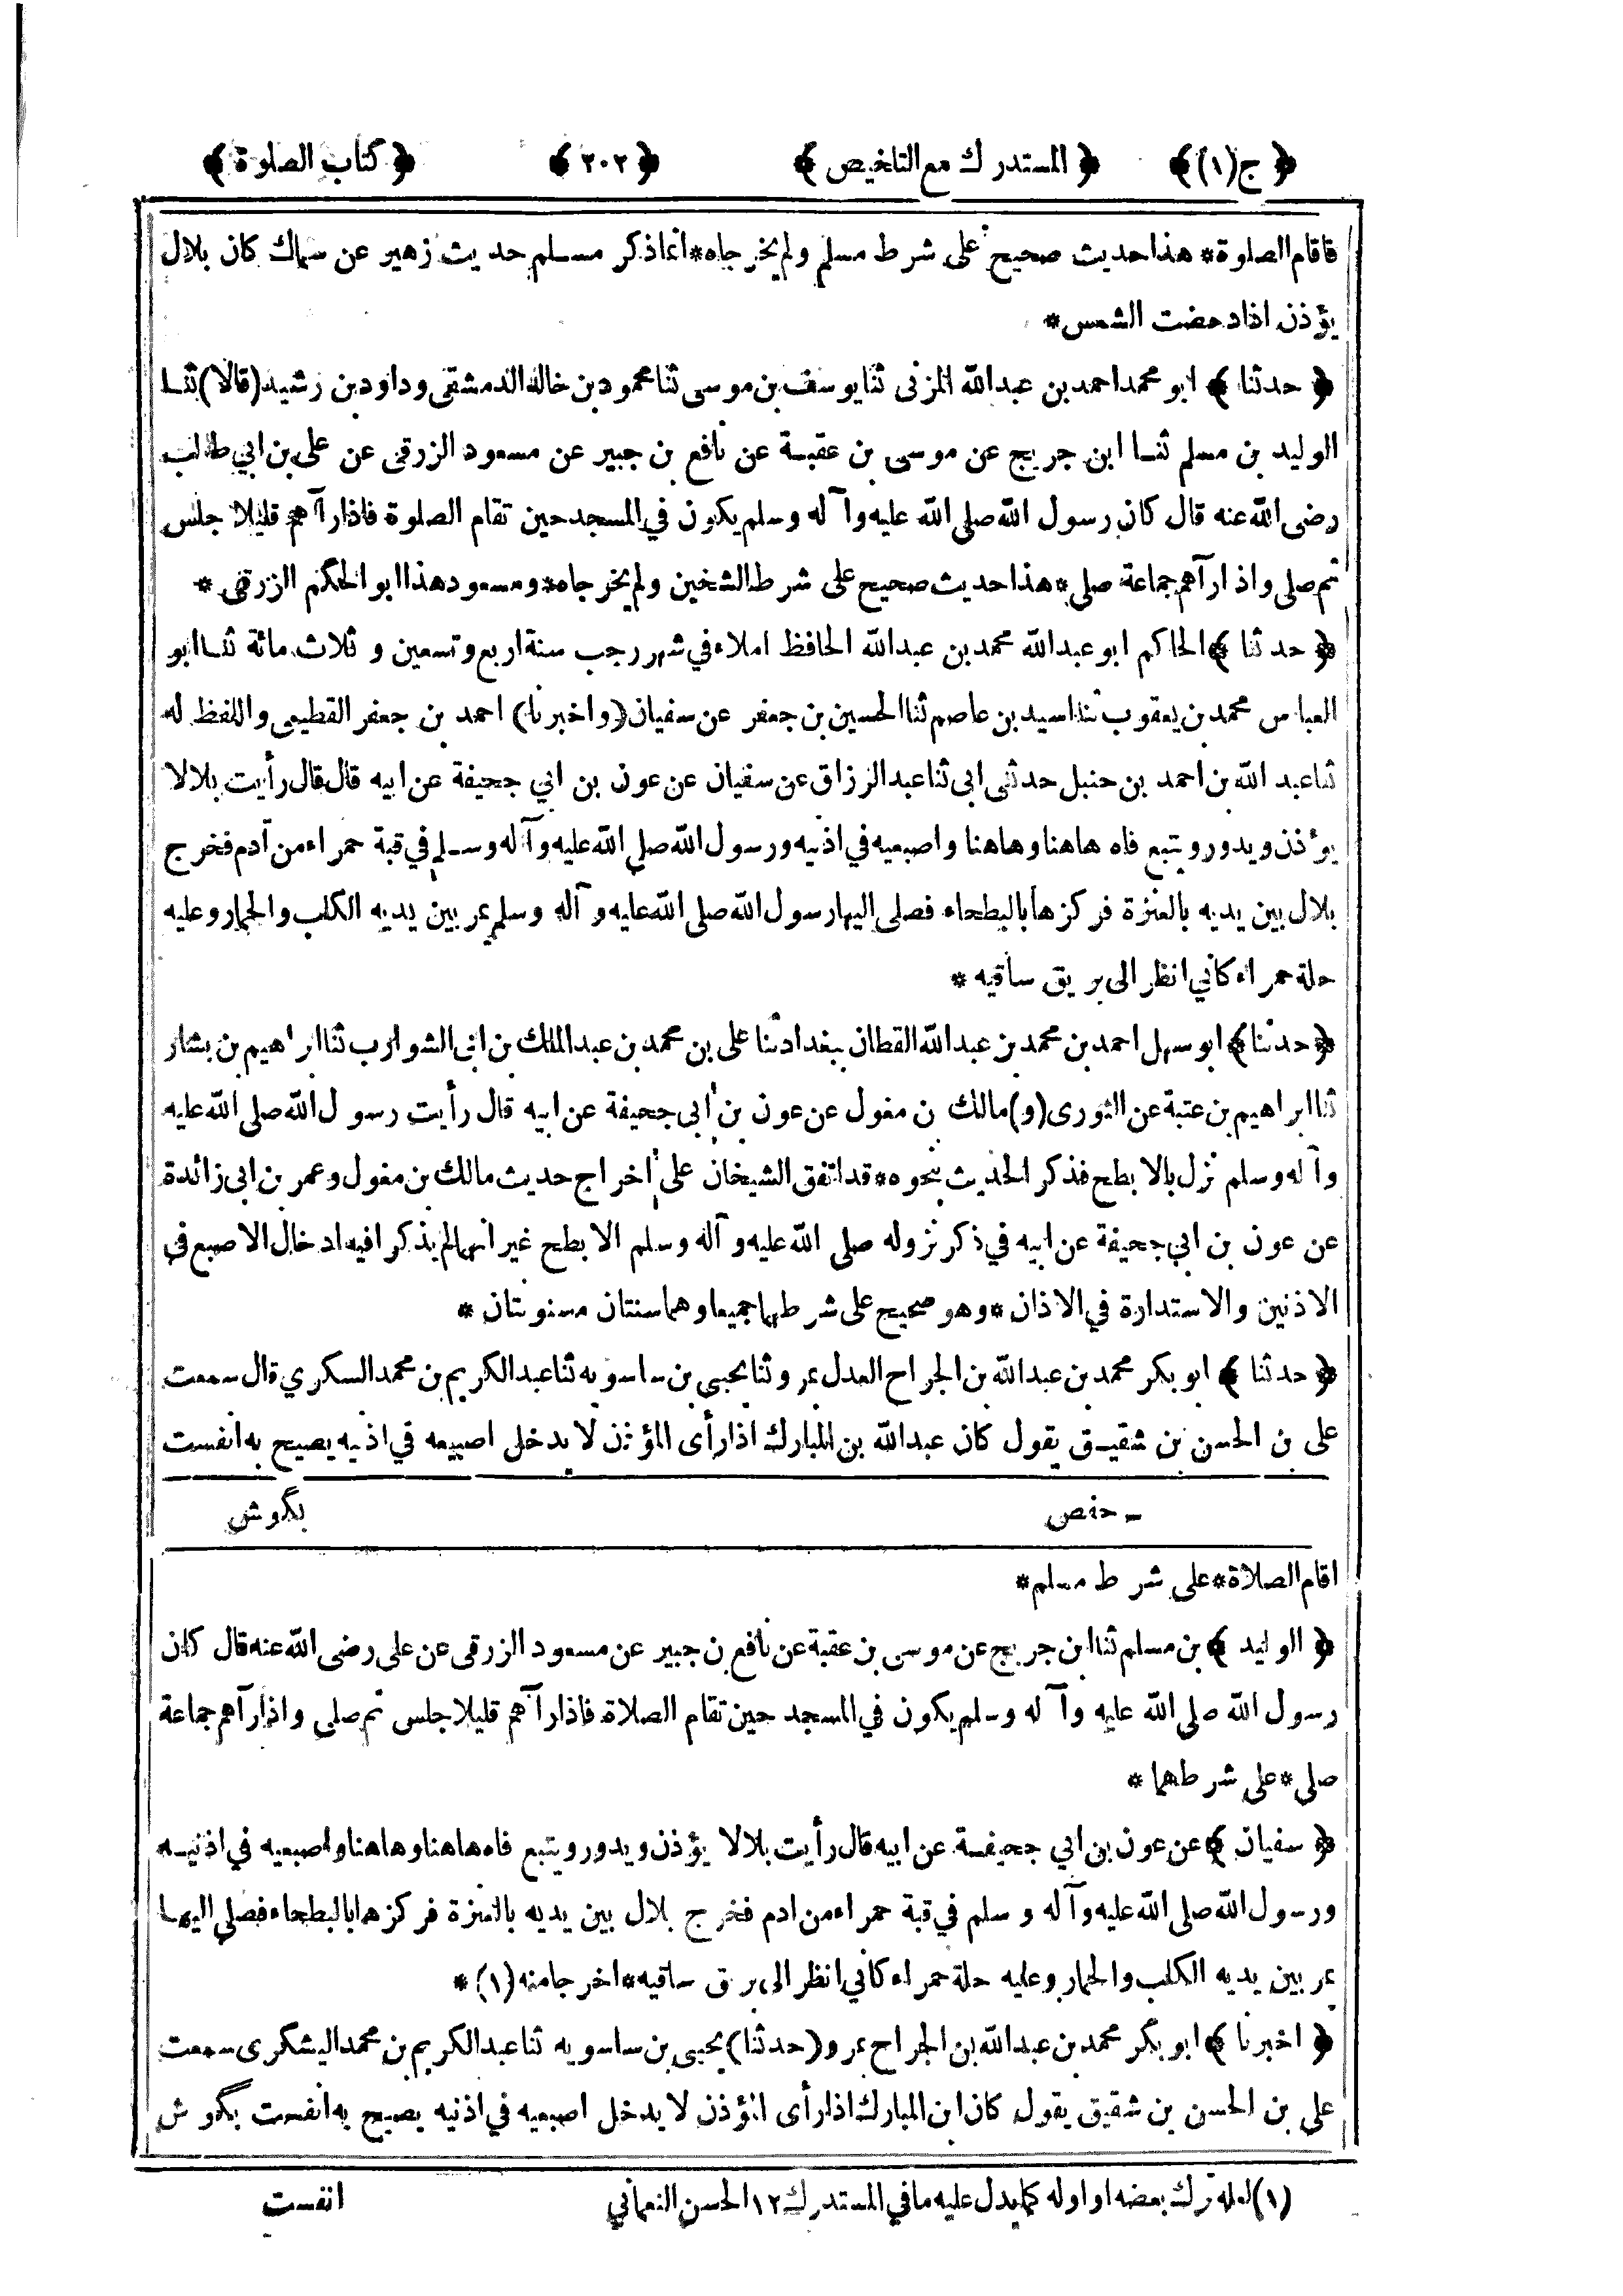 ﴿ ج(١) ﴾ ﴿ المستدرك مع التلخيص ﴾ ﴿ ٢٠٢ ﴾ ﴿ كتاب الصلوة ﴾
فاقام الصلوة * هذا حديث صحيح على شرط مسلم ولم يخرجاه * انما ذكر مسلم حديث زهير عن سماك كان بلال
يؤذن اذا دحضت الشمس *
﴿ حدثنا ﴾ ابو محمد احمد بن عبد الله المزنى ثنا يوسف بن موسى ثنا محمود بن خالد الدمشقى وداود بن رشيد (قالا) ثنا
الوليد بن مسلم ثنا ابن جريج عن موسى بن عقبة عن نافع بن جبير عن مسعود الزرقى عن على بن ابي طالب
رضى الله عنه قال كان رسول الله صلى الله عليه وآله وسلم يكون في المسجد حين تقام الصلوة فاذا رآهم قليلا جلس
ثم صلى واذا رآهم جماعة صلى * هذا حديث صحيح على شرط الشخين ولم يخرجاه * ومسعود هذا ابو الحكم الزرقى *
﴿ حدثنا ﴾ الحاكم ابو عبد الله محمد بن عبد الله الحافظ املاء في شهر رجب سنة اربع وتسعين وثلاث مائة ثنا ابو
العباس محمد بن يعقوب ثنا اسيد بن عاصم ثنا الحسين بن جعفر عن سفيان (واخبرنا) احمد بن جعفر القطيعى واللفظ له
ثنا عبد الله بن احمد بن حنبل حدثنى ابى ثنا عبد الرزاق عن سفيان عن عون بن ابي جحيفة عن ابيه قال قال رأيت بلالا
يؤذن ويدور ويتبع فاه هاهنا وهاهنا واصبعيه في اذنيه ورسول الله صلى الله عليه وآله وسلم في قبة حمراء من آدم فخرج
بلال بين يديه بالعنزة فركزها بالبطحاء فصلى اليها رسول الله صلى الله عليه وآله وسلم يمر بين يديه الكلب والحمار وعليه
حلة حمراء كأني انظر الى بريق ساقيه *
﴿ حدثنا ﴾ ابو سهل احمد بن محمد بن عبد الله القطان ببغداد ثنا على بن محمد بن عبد الملك بن ابى الشوارب ثنا ابراهيم بن بشار
ثنا ابراهيم بن عتبة عن الثورى (و) مالك بن مغول عن عون بن أبى جحيفة عن ابيه قال رأيت رسول الله صلى الله عليه
وآله وسلم نزل بالابطح فذكر الحديث بنحوه * قد اتفق الشيخان على اخراج حديث مالك بن مغول وعمر بن ابى زائدة
عن عون بن ابي جحيفة عن ابيه في ذكر نزوله صلى الله عليه وآله وسلم الابطح غير انهما لم يذكرا فيه ادخال الاصبع فى
الاذنين والاستدارة في الاذان * وهو صحيح على شرطهما جميعا وهما سنتان مسنونتان *
﴿ حدثنا ﴾ ابو بكر محمد بن عبد الله بن الجراح العدل بمرو ثنا يحيى بن ساسويه ثنا عبد الكريم بن محمد السكري قال سمعت
على بن الحسن بن شقيق يقول كان عبد الله بن المبارك اذا رأى المؤذن لا يدخل اصبيعه في اذنيه يصيح به انفست
ـ حفص بگوش
اقام الصلاة * على شرط مسلم *
﴿ الوليد ﴾ بن مسلم ثنا ابن جريج عن موسى بن عقبة عن نافع بن جبير عن مسعود الزرقى عن على رضى الله عنه قال كان
رسول الله صلى الله عليه وآله وسلم يكون في المسجد حين تقام الصلاة فاذا رآهم قليلا جلس ثم صلى واذا رآهم جماعة
صلى * على شرطهما *
﴿ سفيان ﴾ عن عون بن ابي جحيفة عن ابيه قال رأيت بلالا يؤذن ويدور ويتبع فاه هاهنا وهاهنا واصبعيه في اذنيه
ورسول الله صلى الله عليه وآله وسلم في قبة حمراء من ادم فخرج بلال بين يديه بالعنزة فركزها بالبطحاء فصلى اليها
يمر بين يديه الكلب والحمار وعليه حلة حمراء كأني انظر الى برق ساقيه * اخرجا منه (١) *
﴿ اخبرنا ﴾ ابو بكر محمد بن عبد الله بن الجراح بمرو (حدثنا) يحيى بن ساسويه ثنا عبد الكريم بن محمد اليشكرى سمعت
على بن الحسن بن شقيق يقول كان ابن المبارك اذا رأى المؤذن لا يدخل اصبعيه في اذنيه يصيح به انفست بگوش
(١) لعله ترك بعضه او اوله كما يدل عليه ما في المستدرك ١٢ الحسن النعماني انفست